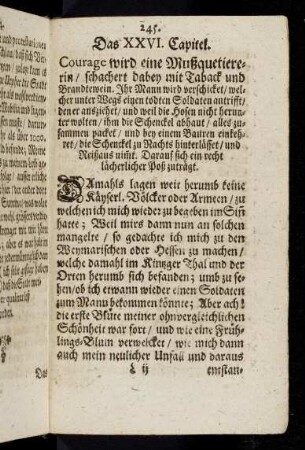 245.
Das XXVI. Capitel.
Courage wird eine Mußquetiere-
rin / schachert dabey mit Taback und
Brandtewein. Ihr Mann wird verschicket / wel-
cher unter Wegs einen todten Soldaten antrifft /
den er ausziehet / und weil die Hosen nicht herun-
ter wolten / ihm die Schenckel abhaut / alles zu-
sammen packet / und bey einem Bauren einkeh-
ret / die Schenckel zu Nachts hinterlässet / und
Reißaus nimt. Darauf sich ein recht
lächerlicher Poß zuträgt.
DAmahls lagen weit herumb keine
Käyserl. Völcker oder Armeen / zu
welchen ich mich wieder zu begeben im Sinn
hatte; Weil mirs dann nun an solchen
mangelte / so gedachte ich mich zu den
Weymarischen oder Hessen zu machen /
welche damahl im Kintzger Thal und der
Orten herumb sich befanden; umb zu se-
hen / ob ich etwann wieder einen Soldaten
zum Mann bekommen könnte; Aber ach!
die erste Blüte meiner ohnvergleichlichen
Schönheit war fort / und wie eine Früh-
lings-Blum verwelcket / wie mich dann
auch mein neulicher Unfall und daraus
Das
entstan-